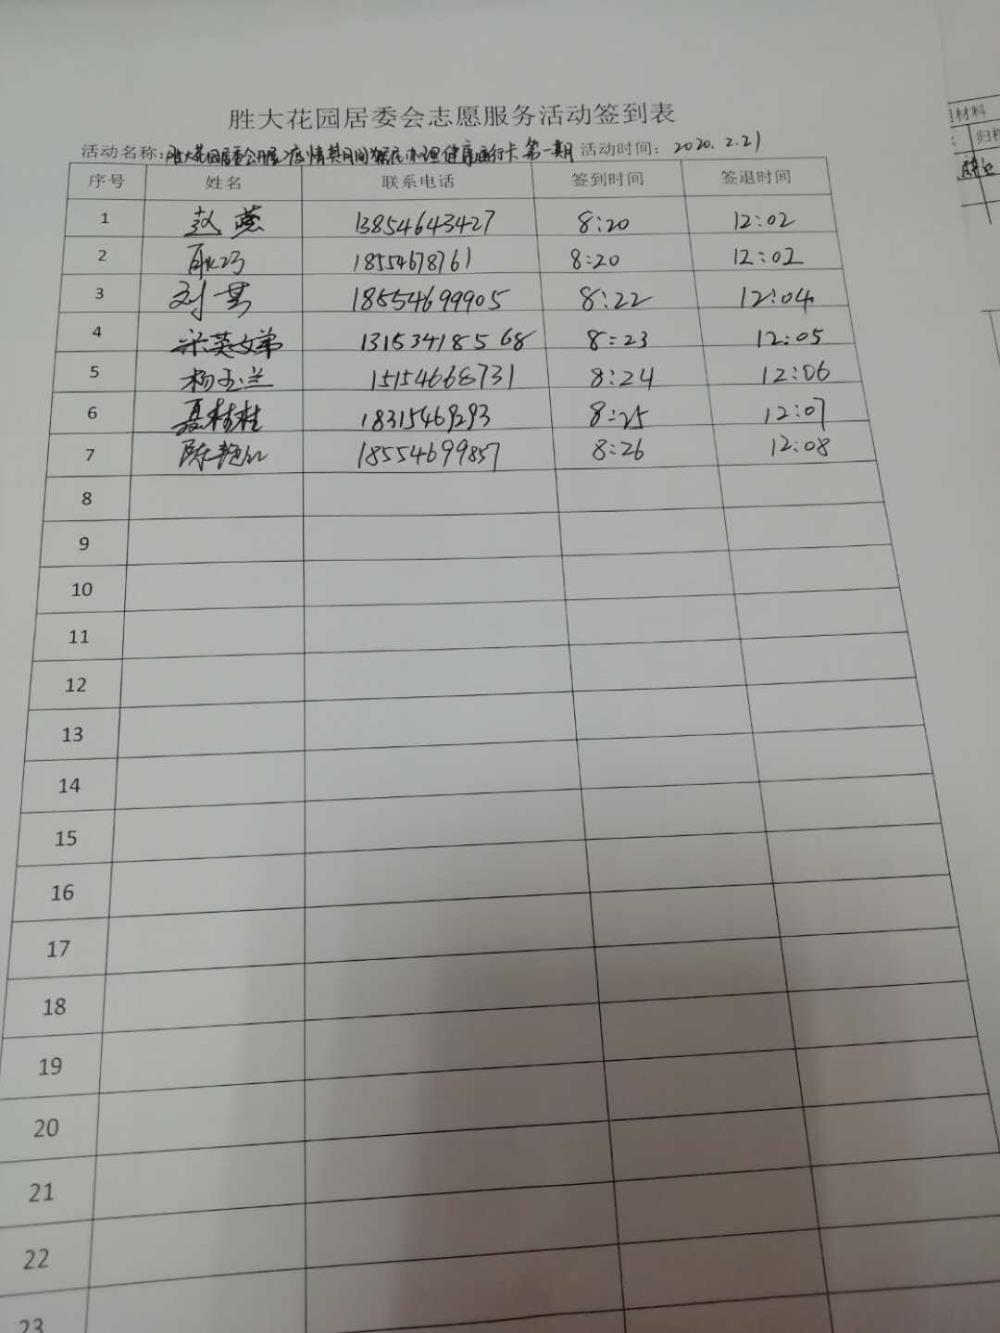 胜大花园居委会志愿服务活动签到表
活动名称:胜大花园居委会开展疫情期间为居民办理健康通行卡第一期 活动时间: 2020.2.21
序号 姓名 联系电话 签到时间 签退时间
1 赵燕 13854643427 8:20 12:02
2 耿巧 18554678761 8:20 12:02
3 刘 18554699905 8:22 12:04
4 宋英文弟 13153418568 8:23 12:05
5 杨玉兰 15154668731 8:24 12:06
6 聂桂桂 18315469293 8:25 12:07
7 陈艳红 18554699857 8:26 12:08
8
9
10
11
12
13
14
15
16
17
18
19
20
21
22
23
材料
归档